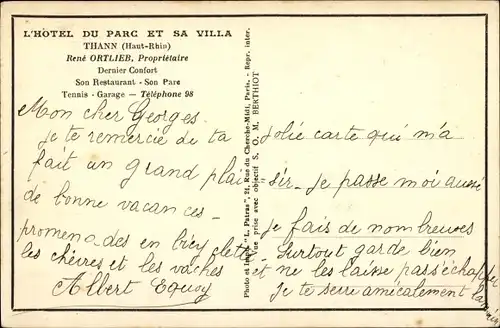 L'HÔTEL DU PARC ET SA VILLA
THANN (Haut-Rhin)
René ORTLIEB, Propriétaire
Dernier Confort
Son Restaurant - Son Parc
Tennis - Garage — Téléphone 98
Mon cher Georges
je te remercie de ta jolie carte qui m'a
fait un grand plai sir. Je passe moi aussi
de bonne vacances -
je fais de nombreuses
promena des en bicyclette. Surtout garde bien
les chèvres et les vaches et ne les laisse pass échapper
Je te serre amicalement la main
Albert
Photo et Impr. "L. Patras", 21, Rue du Cherche-Midi, Paris. - Repr. inter.
Vue prise avec objectif S. O. M. BERTHIOT